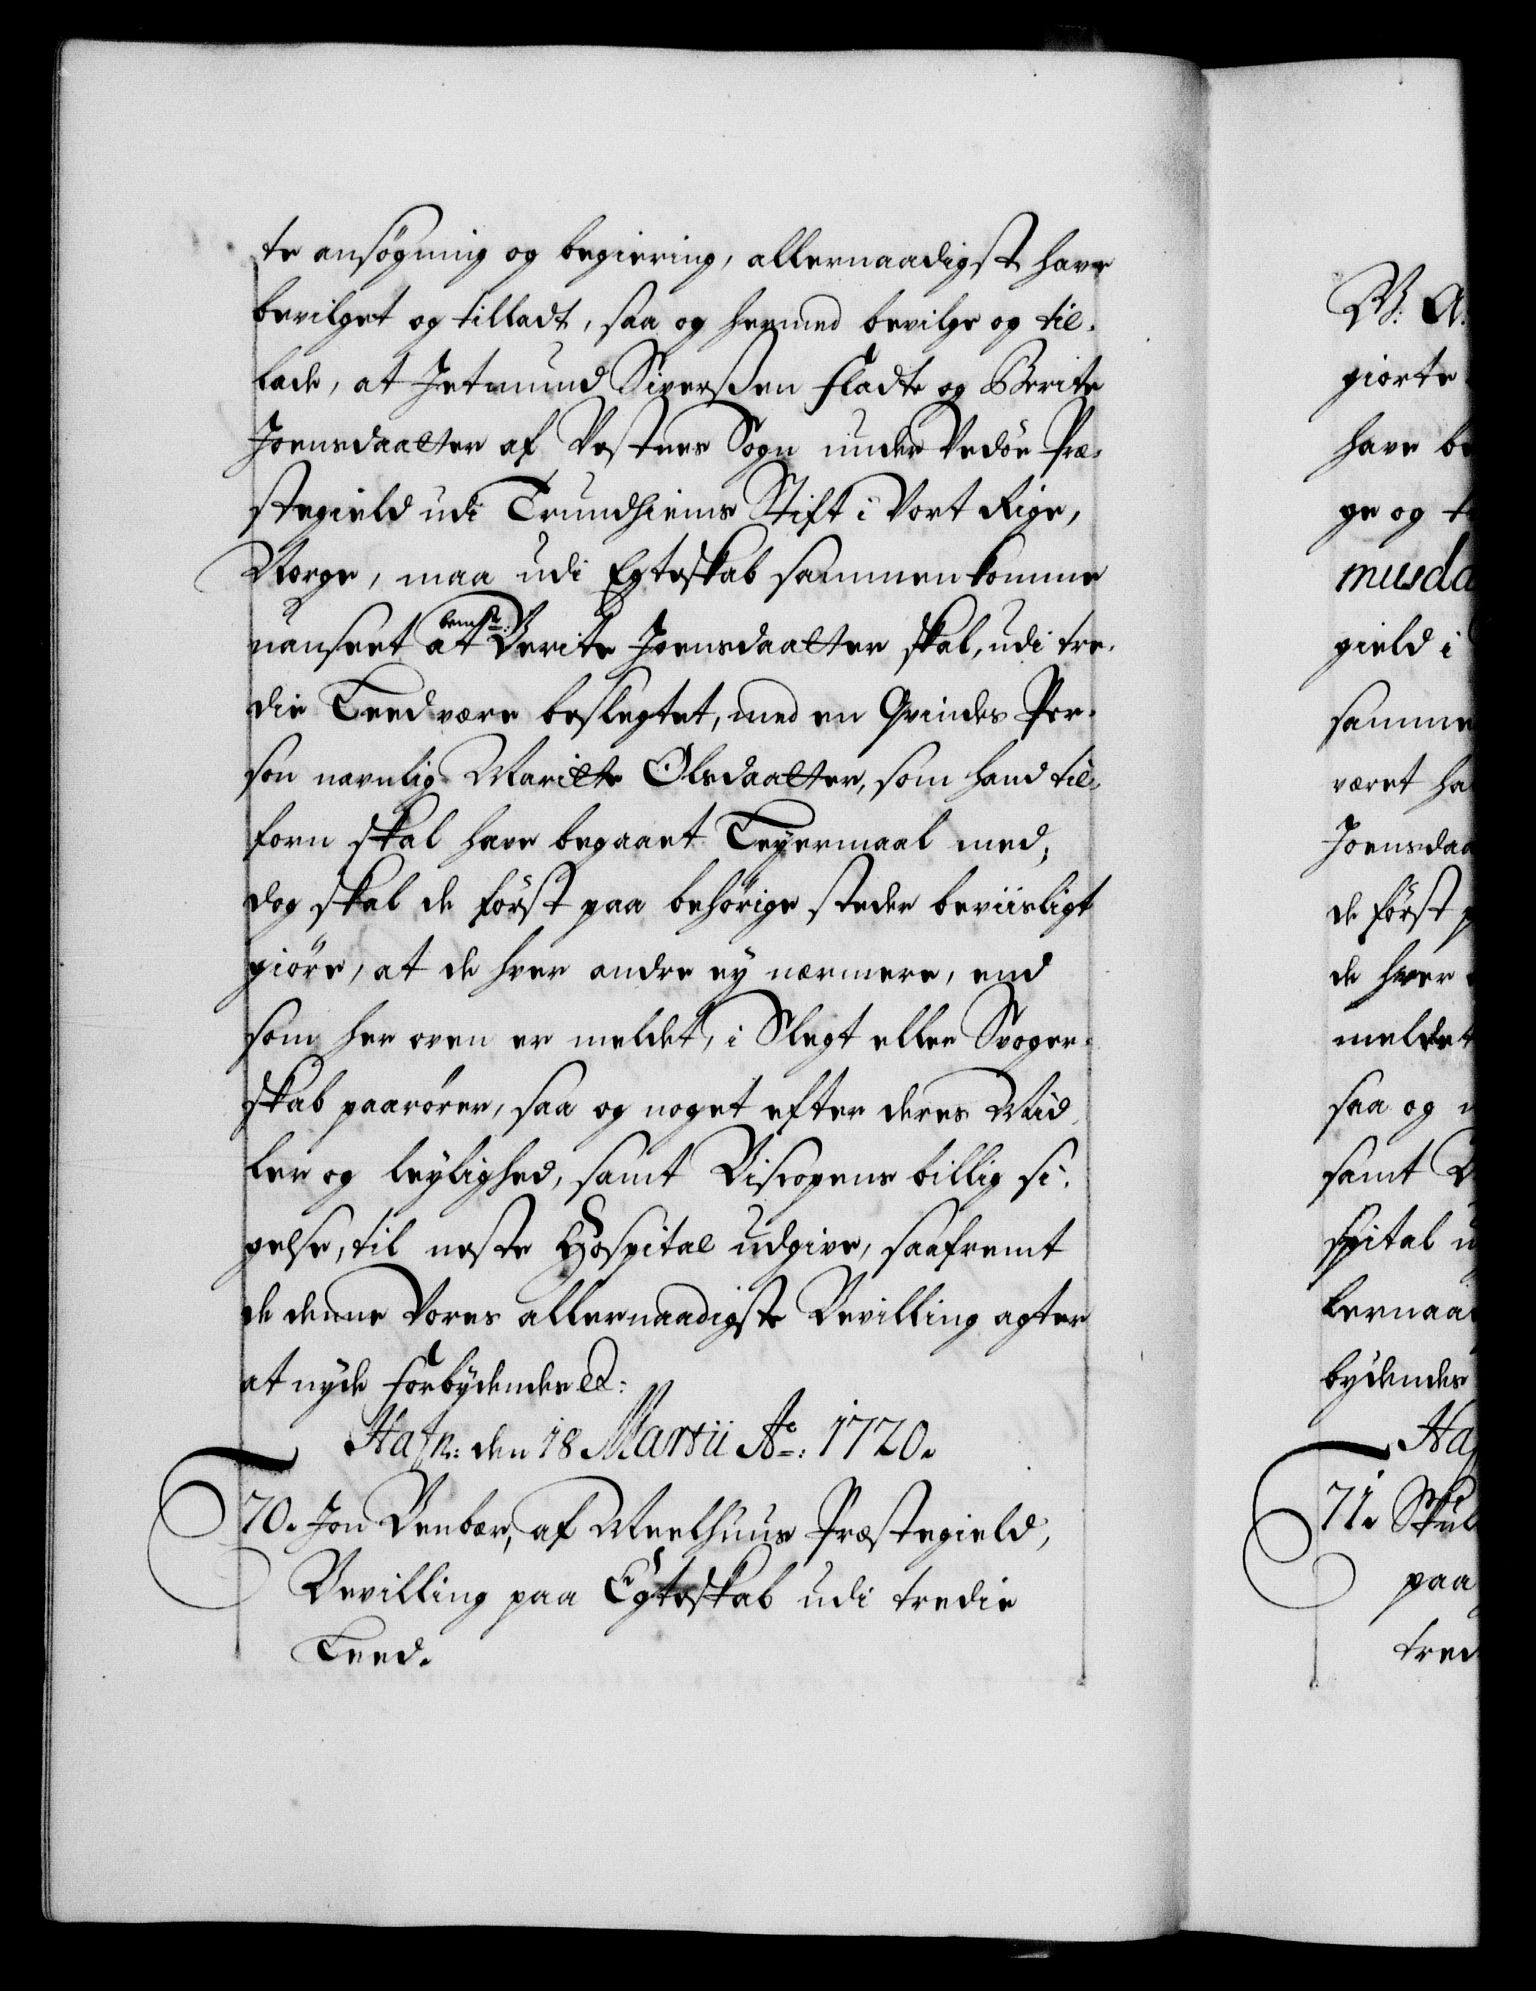 te ansøgning og begiering, allernaadigst have
bevilget og tilladt, saa og hermed bevilge og til-
lade, at Jetmund Siverßen Fladte og Berite
Joensdaatter af Vestnes Sogn under Vedøe Præ-
stegield udi Trundhiems Stift i Vort Rige,
Norge, maa udi Egteskab sammenkomme
uanseet at bemte: Berite Joensdaatter skal, udi tre-
die Leed være beslegtet, med en Qvindes Per-
son navnlig Maritte Olsdaatter, som hand til-
forn skal have begaaet Leyermaal med;
dog skal de først paa behørige steder beviisligt
giøre, at de hver andre ey nærmere, end
som her oven er meldet, i Slegt eller Svoger-
skab paarører, saa og noget efter deres Mid-
ler og leylighed, samt Biscopens billig si-
gelse, til neste Hospital udgive, saafremt
de denne Vores allernaadigste Bevilling agter
at nyde Forbydendes etc:
Hafn: den 18 Martii Ao: 1720.
70. Jon Benbær, af Meelhuus Præstegield,
Bevilling paa Egteskab udi tredie
Leed.
M: A:
giorte
have be
ge og t
musda
gield i
samme
været ha
Joensdaa
de først p
de hver
meldet
saa og n
samt B
spital u
lernaad
bydendes
Haf
71. Skul
paa
tred